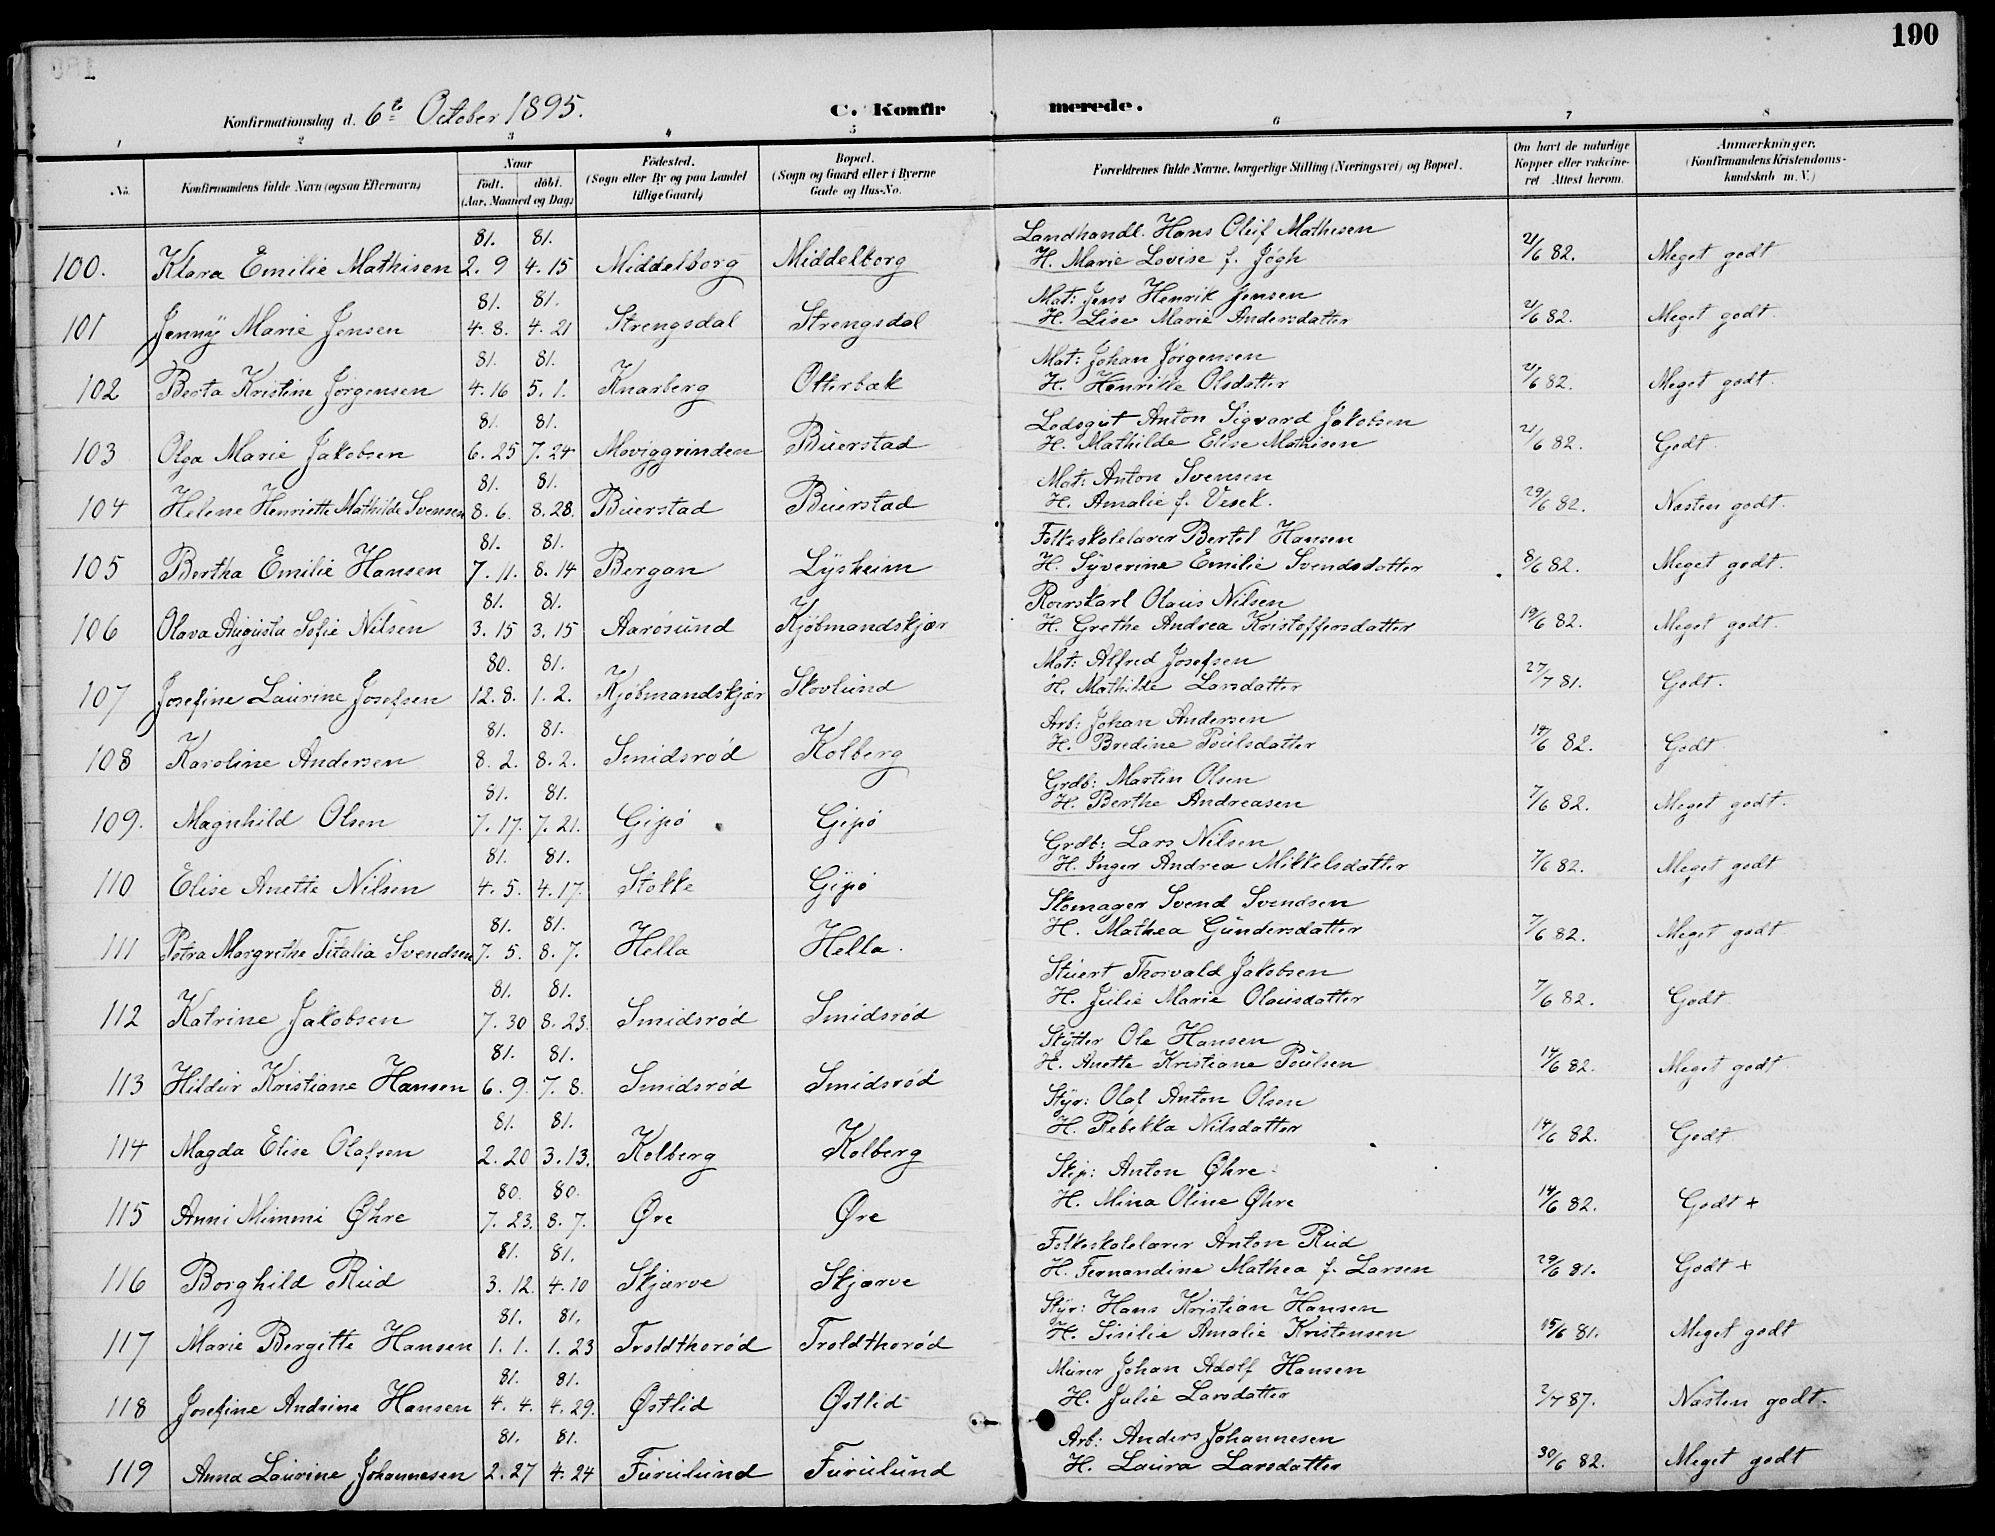 190
Konfirmationsdag d. 6te October 1895. C. Konfirmerede.
1 2 3 4 5 6 7 8
No. Konfirmandens fulde Navn (ogsaa Efternavn) Naar født. døbt. (Aar, Maaned og Dag) Fødested. (Sogn eller By og paa Landet tillige Gaard) Bopæl. (Sogn og Gaard eller i Byerne Gade og Hus-No. Forældrenes fulde Navne, borgerlige Stilling (Næringsvei) og Bopæl. Om havt de naturlige Kopper eller vakcineret Attest herom. Anmærkninger. (Konfirmandens Kristendomskundskab m. V.)
81. 81. Landhandl. Hans Oluf Mathisen
100. Klara Emilie Mathisen 2. 9 4. 15 Middelborg Middelborg H. Marie Lovise f. Jøgh 21/6 82. Meget godt
81. 81. Mat: Jens Henrik Jensen
101 Jenny Marie Jensen 4. 8. 4. 21 Strengsdal Strengsdal H. Lise Marie Andersdatter 21/6 82. Meget godt
81. 81. Mat: Johan Jørgensen
102 Berta Kristine Jørgensen 4. 16 5. 1. Knarberg Otterbæk H. Henrikke Olsdatter 21/6 82. Meget godt.
81. 81. Lodsgut Anton Sigvard Jakobsen
103 Olga Marie Jakobsen 6. 25 7. 24 Moviggrinden Buerstad H. Mathilde Elise Mathisen 21/6 82. Godt.
81. 81. Mat: Anton Svensen
104 Helene Henriette Mathilde Svensen 8. 6. 8. 28. Buerstad Buerstad H. Amalie f. 29/6 82. Næsten godt.
81. 81. Folkeskolelærer Bertel Hansen
105 Bertha Emilie Hansen 7. 11. 8. 14 Bergan Lysheim H. Syverine Emilie Svendsdatter 8/6 82. Meget godt.
81. 81. Roerskarl Olaus Nilsen
106 Olava Augusta Sofie Nilsen 3. 15 3. 15 Aarøsund Kjøbmandskjær H. Grethe Andrea Kristoffersdatter 19/6 82. Meget godt.
80. 81. Mat: Alfred Josefsen
107 Josefine Laurine Josefsen 12. 8. 1. 2. Kjøbmandskjær Skovlund H. Mathilde Larsdatter 27/7 81. Godt.
81. 81. Arb: Johan Andersen
108 Karoline Andersen 8. 2. 8. 2. Smidsrød Kolberg H. Bredine Poulsdatter 14/6 82. Godt.
81. 81. Grdb: Martin Olsen
109. Magnhild Olsen 7. 17. 7. 21. Gipø Gipø H. Berthe Andreasen 7/6 82. Meget godt.
81. 81. Grdb: Lars Nilsen
110 Elise Anette Nilsen 4. 5. 4. 17. Stokke Gipø H. Inger Andrea Mikkelsdatter 7/6 82. Meget godt
81. 81. Skomager Svend Svendsen
111 Petra Margrethe Titalia Svendsen 7. 5. 8. 7. Hella Hella. H. Mathea Gundersdatter 7/6 82. Meget godt
81. 81. Stuert Thorvald Jakobsen
112 Katrine Jakobsen 7. 30 8. 23. Smidsrød Smidsrød H. Julie Marie Olausdatter 7/6 82. Godt
81. 81. Skytter Ole Hansen
113 Hildur Kristiane Hansen 6. 9. 7. 8. Smidsrød Smidsrød H. Anette Kristiane Poulsen 14/6 82. Meget godt
81. 81. Styr: Olaf Anton Olsen
114 Magda Elise Olafsen 2. 20 3. 13. Kolberg Kolberg H. Rebekka Nilsdatter 14/6 82. Godt
80. 80. Skip: Anton Øhre.
115 Anni Mimmi Øhre 7. 23. 8. 7. Øre Øre H. Mina Oline Øhre 14/6 82. Godt +
81. 81. Folkeskolelærer Anton Rud
116 Borghild Rud 3. 12. 4. 10 Skjærve Skjærve H. Fernandine Mathea f. Larsen 29/6 81. Godt +
81. 81. Styr: Hans Kristian Hansen
117 Marie Bergitte Hansen 1. 1. 1. 23 Troldthorød Troldthorød H. Sisilie Amalie Kristensen 15/6 81. Meget godt
81. 81. Murer Johan Adolf Hansen
118 Josefine Andrine Hansen 4. 4. 4. 29. Østlid Østlid H. Julie Larsdatter 2/7 87. Næsten godt.
81. 81. Arb: Anders Johannesen
119 Anna Laurine Johannesen 2. 27 4. 24 Furulund Furulund H. Laura Larsdatter 30/6 82. Meget godt